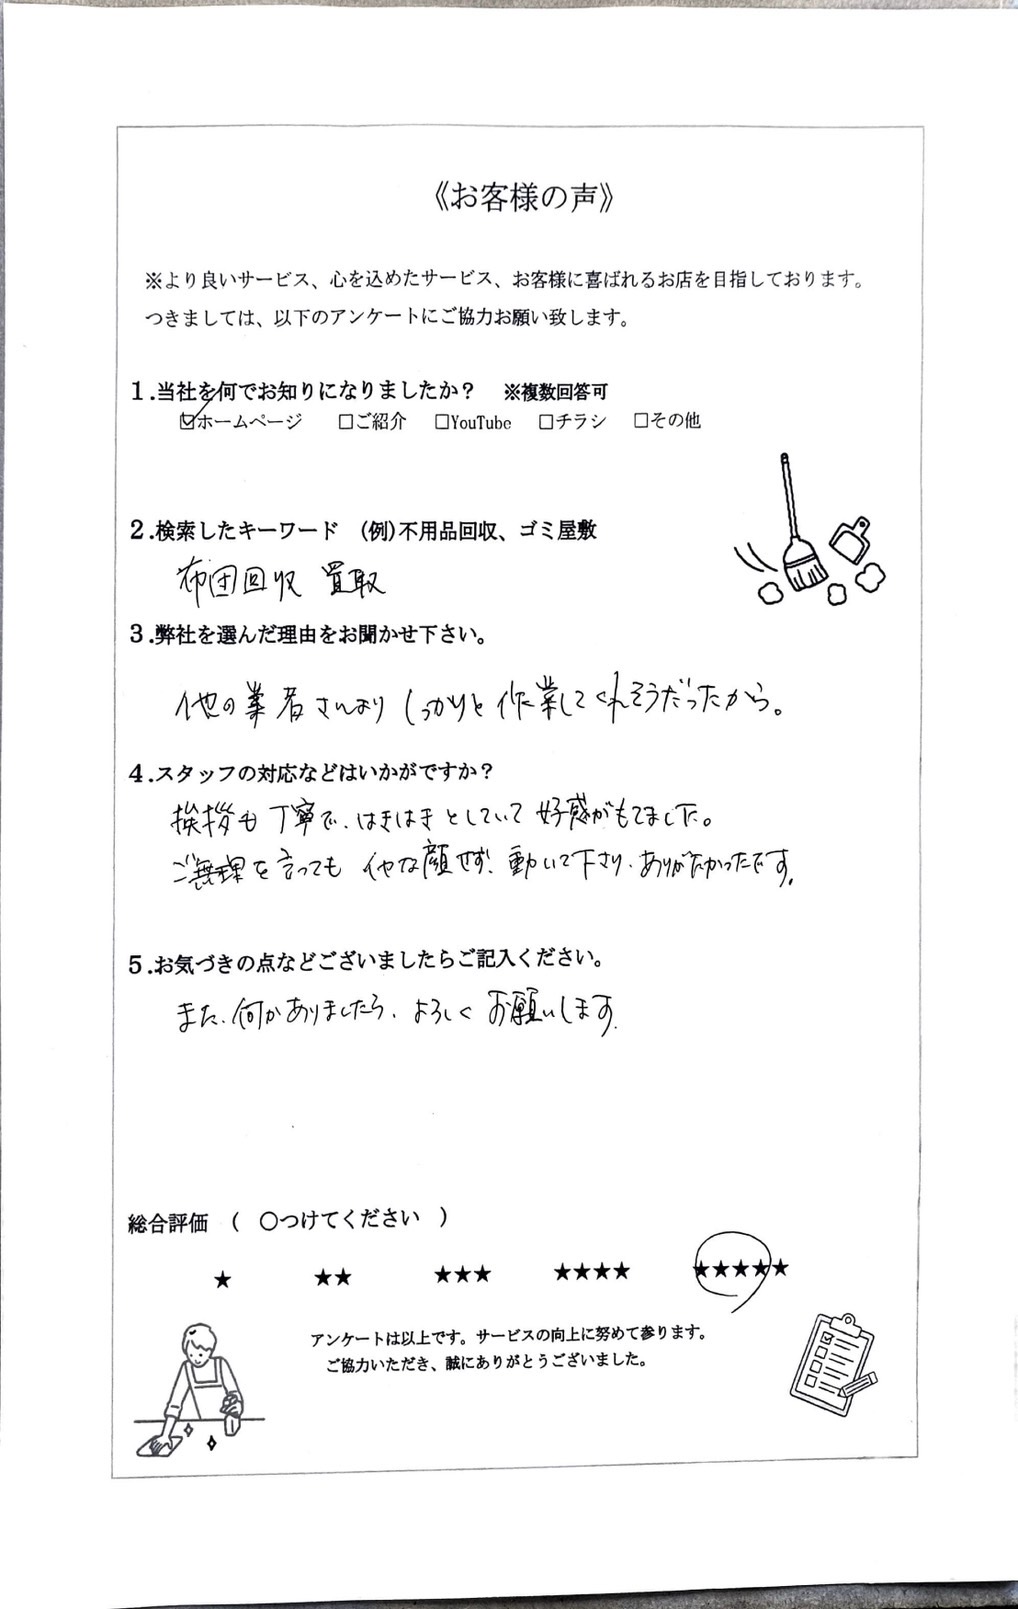 《お客様の声》
※より良いサービス、心を込めたサービス、お客様に喜ばれるお店を目指しております。
つきましては、以下のアンケートにご協力お願い致します。
1.当社を何でお知りになりましたか？ ※複数回答可
☑ホームページ □ご紹介 □YouTube □チラシ □その他
2.検索したキーワード (例)不用品回収、ゴミ屋敷
布団回収 買取
3.弊社を選んだ理由をお聞かせ下さい。
他の業者さんより しっかりと作業してくれそうだったから。
4.スタッフの対応などはいかがですか？
挨拶も丁寧で、はきはきとしていて 好感がもてました。
ご無理を言っても イヤな顔せず、動いて下さり、ありがたかったです。
5.お気づきの点などございましたらご記入ください。
また、何かありましたら、よろしくお願いします。
総合評価 ( ○つけてください )
★ ★★ ★★★ ★★★★ ★★★★★
アンケートは以上です。サービスの向上に努めて参ります。
ご協力いただき、誠にありがとうございました。